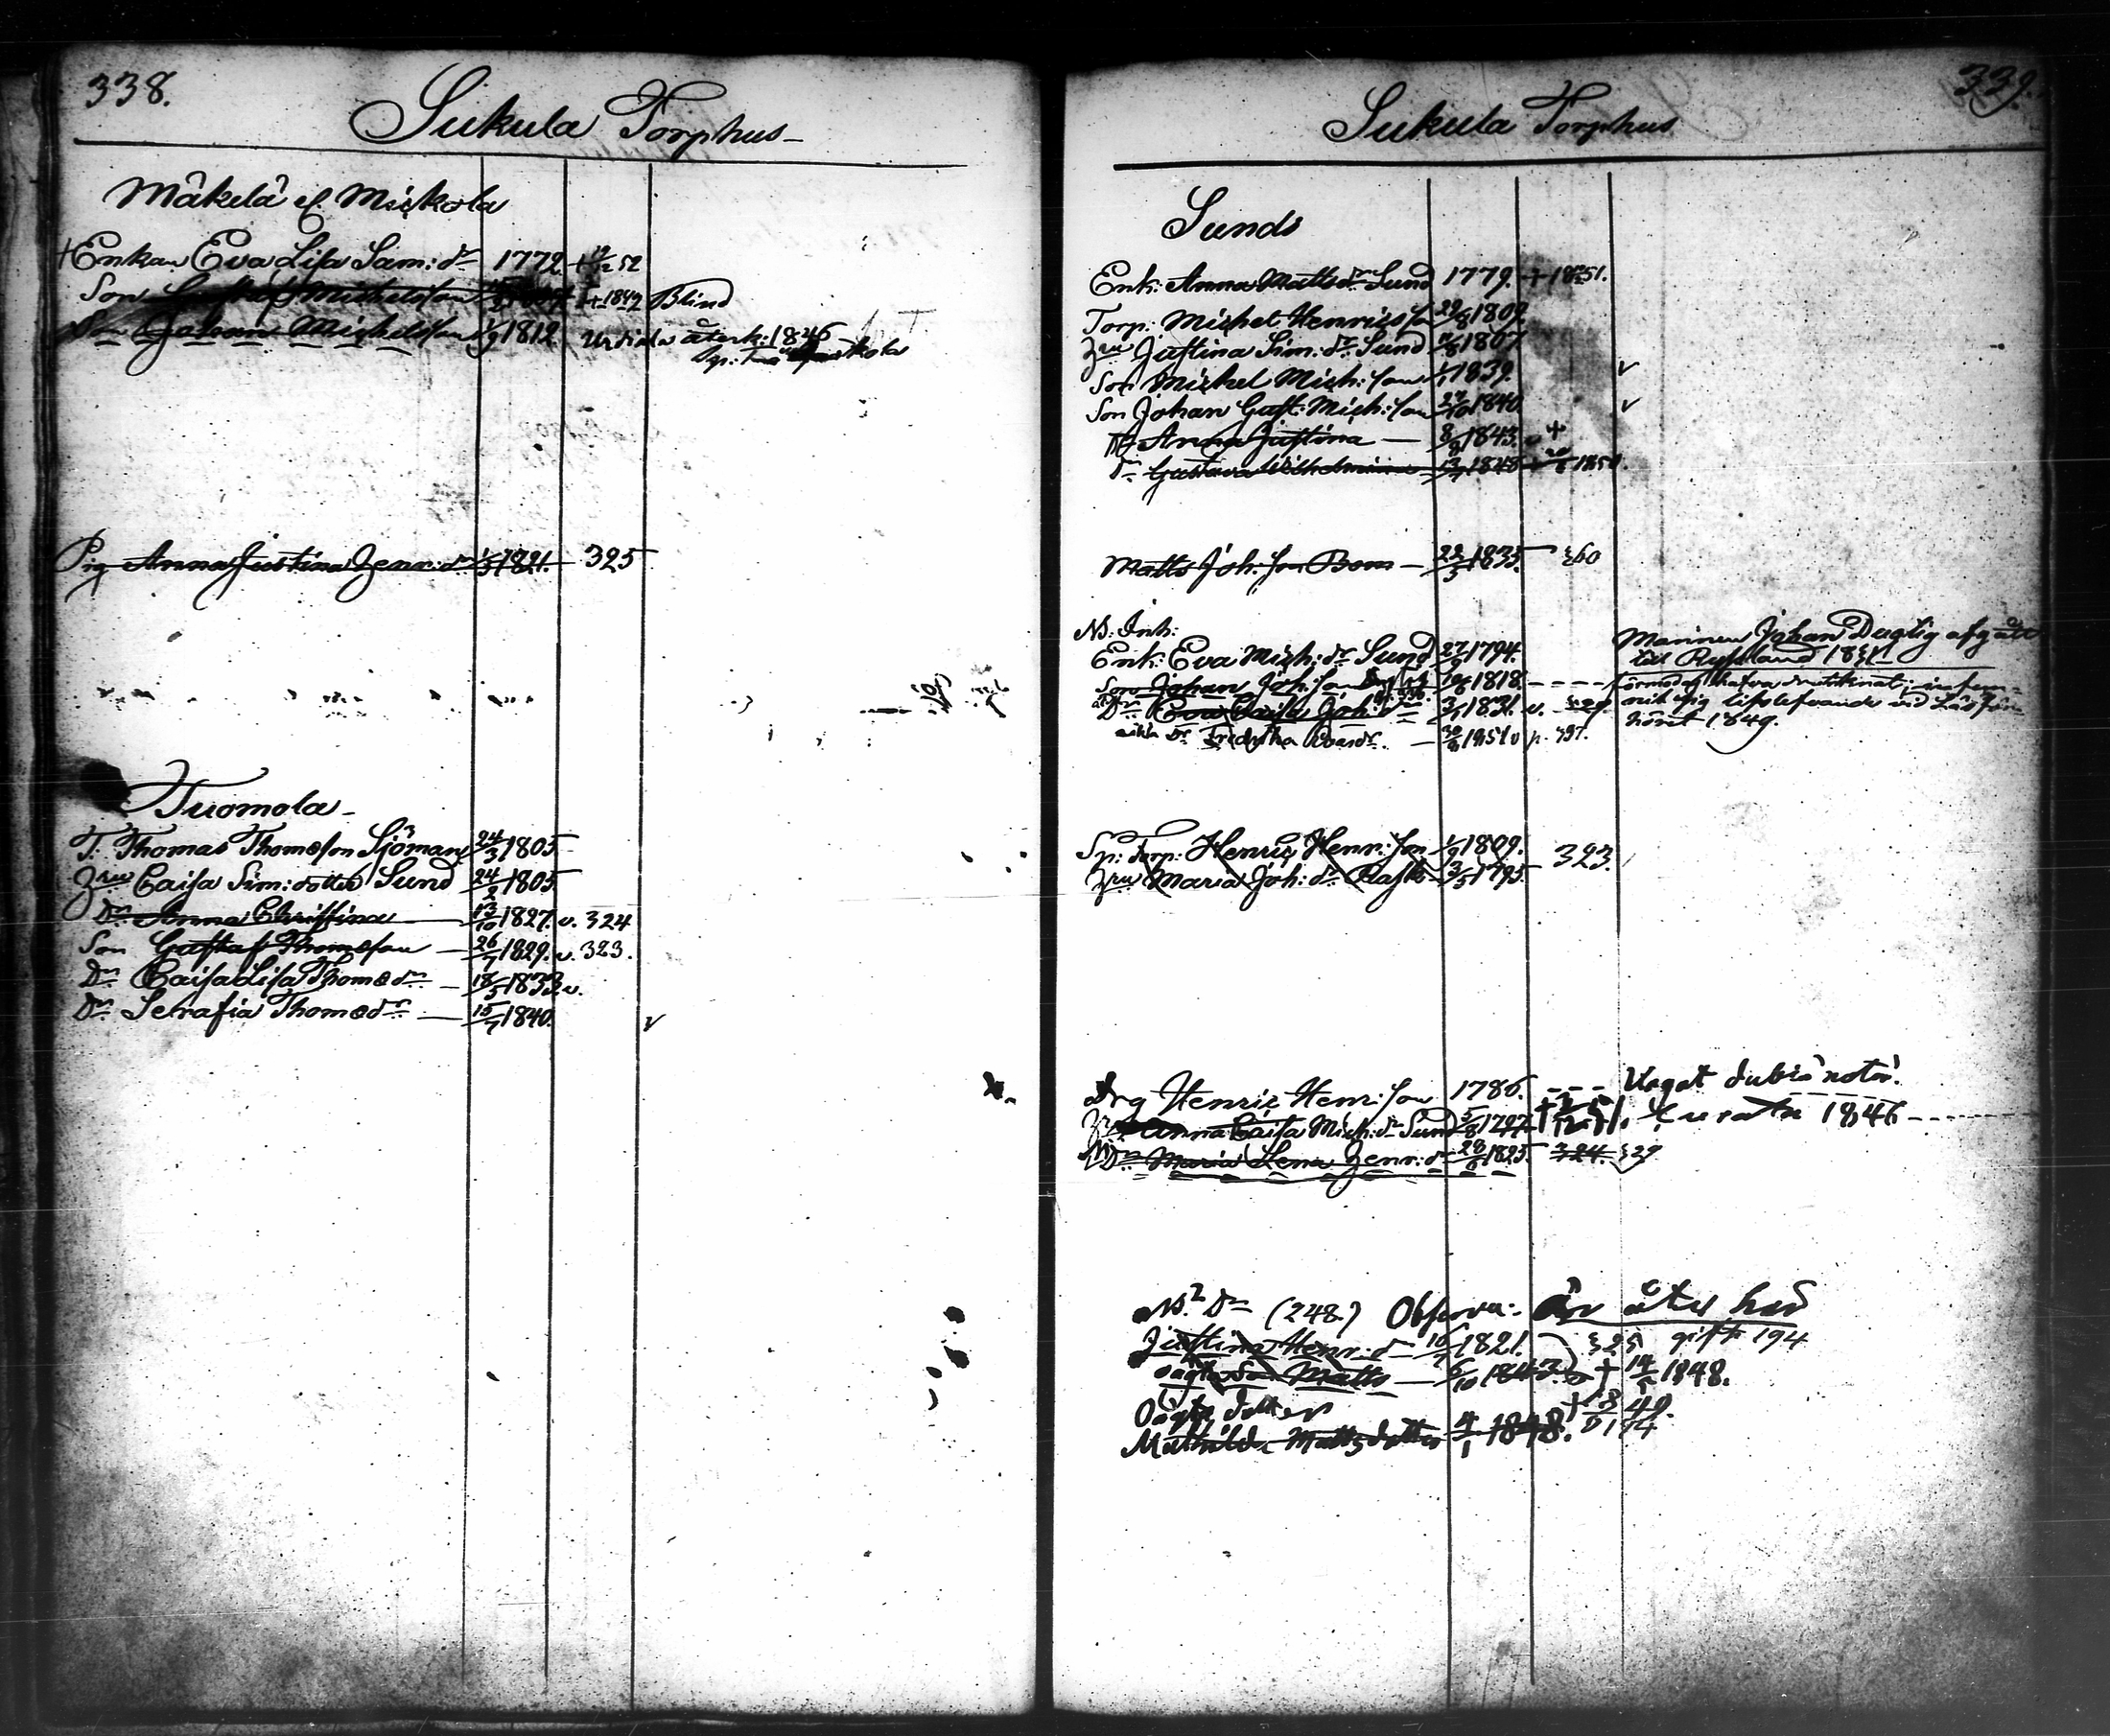 338.
Sukula Torphus
Mäkelä el. Mickola
+ Enkan Eva Lisa Sam: dr 1772 + 19/12 52
Son Gustaf Michelsson + 1849 Blind
Son Johan Michelsson 1/9 1812. Ursida återk: 1846
Pig Anna Justina Henr: dr 1/3 1821. 325
Tuomola
T. Thomas Thomasson Sjöman 24/3 1805
Hru Caisa Sim: dotter Sund 24/2 1805
Dr Anna Christina 13/10 1827. v. 324
Son Gustaf Thomasson 26/7 1829. v. 323.
Dr Caisa Lisa Thomædr 18/5 1833 v.
Dr Serafia Thomædr 15/7 1840. v
339.
Sukula Torphus
Sunds
Enk: Anna Matts dr Sund 1779. + 1851.
Torp: Michel Henricsson 29/8 1809
Hru Justina Sim: dr Sund 1807
Son Michel Mich: son 1/1 1839. v
Son Johan Gust: Mich: son 27/10 1840 v
Anna Justina 8/9 1843. +
dr Gustava Wilhelmina 1848 + 20/6 1850.
Matts Joh: son Bom 22/3 1835. 360
NB. Inh:
Enk: Eva Mich: dr Sund 27/9 1794. Marinen Johan Duglig afgått
till Ryssland
Son Johan Joh: son 1818.
Dr Eva Caisa Joh: dr 3/5 1831. v. 329.
Fredrika 30/9 1851 v p. 397.
hörét 1849.
Sp: Torp: Henric Henr: son 1/9 1809. 323.
Hru Maria Joh: dr Rask 3/3 1795.
Drg Henric Henr: son 1786. Vagat dubiæ notæ.
Hru Anna Caisa Mich: dr Sund 5/8 1797. 1846
Dr Maria Lena Henr: dr 28/6 1825. 324. 329
NB.2 Dr (248.) Observa: Är åter här
Justina Henr: dr 16/7 1821. 325 gift 194
oägta Son Matts 6/10 1843. + 14/5 1848.
Oägta dotter
Mathilda Mattsdotter 4/1 1848. + 49. 194